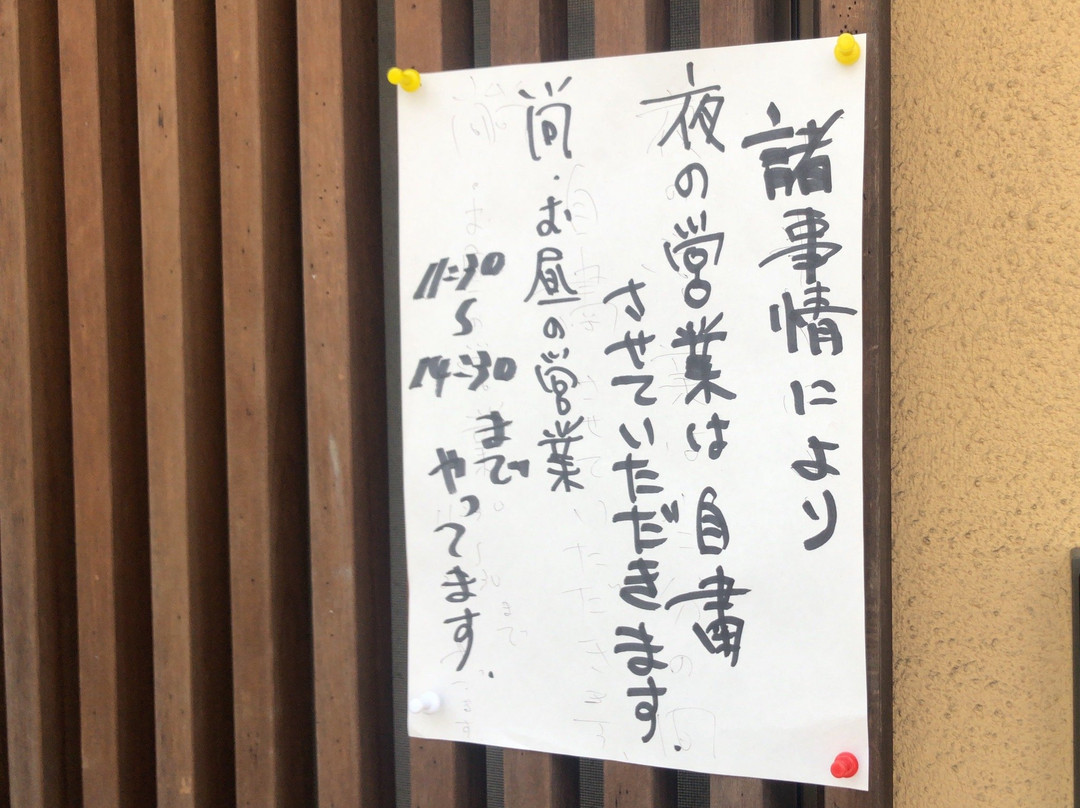 諸事情により
夜の営業は自粛
させていただきます.
尚.お昼の営業
11:30
〜
14:30
まで
やってます.